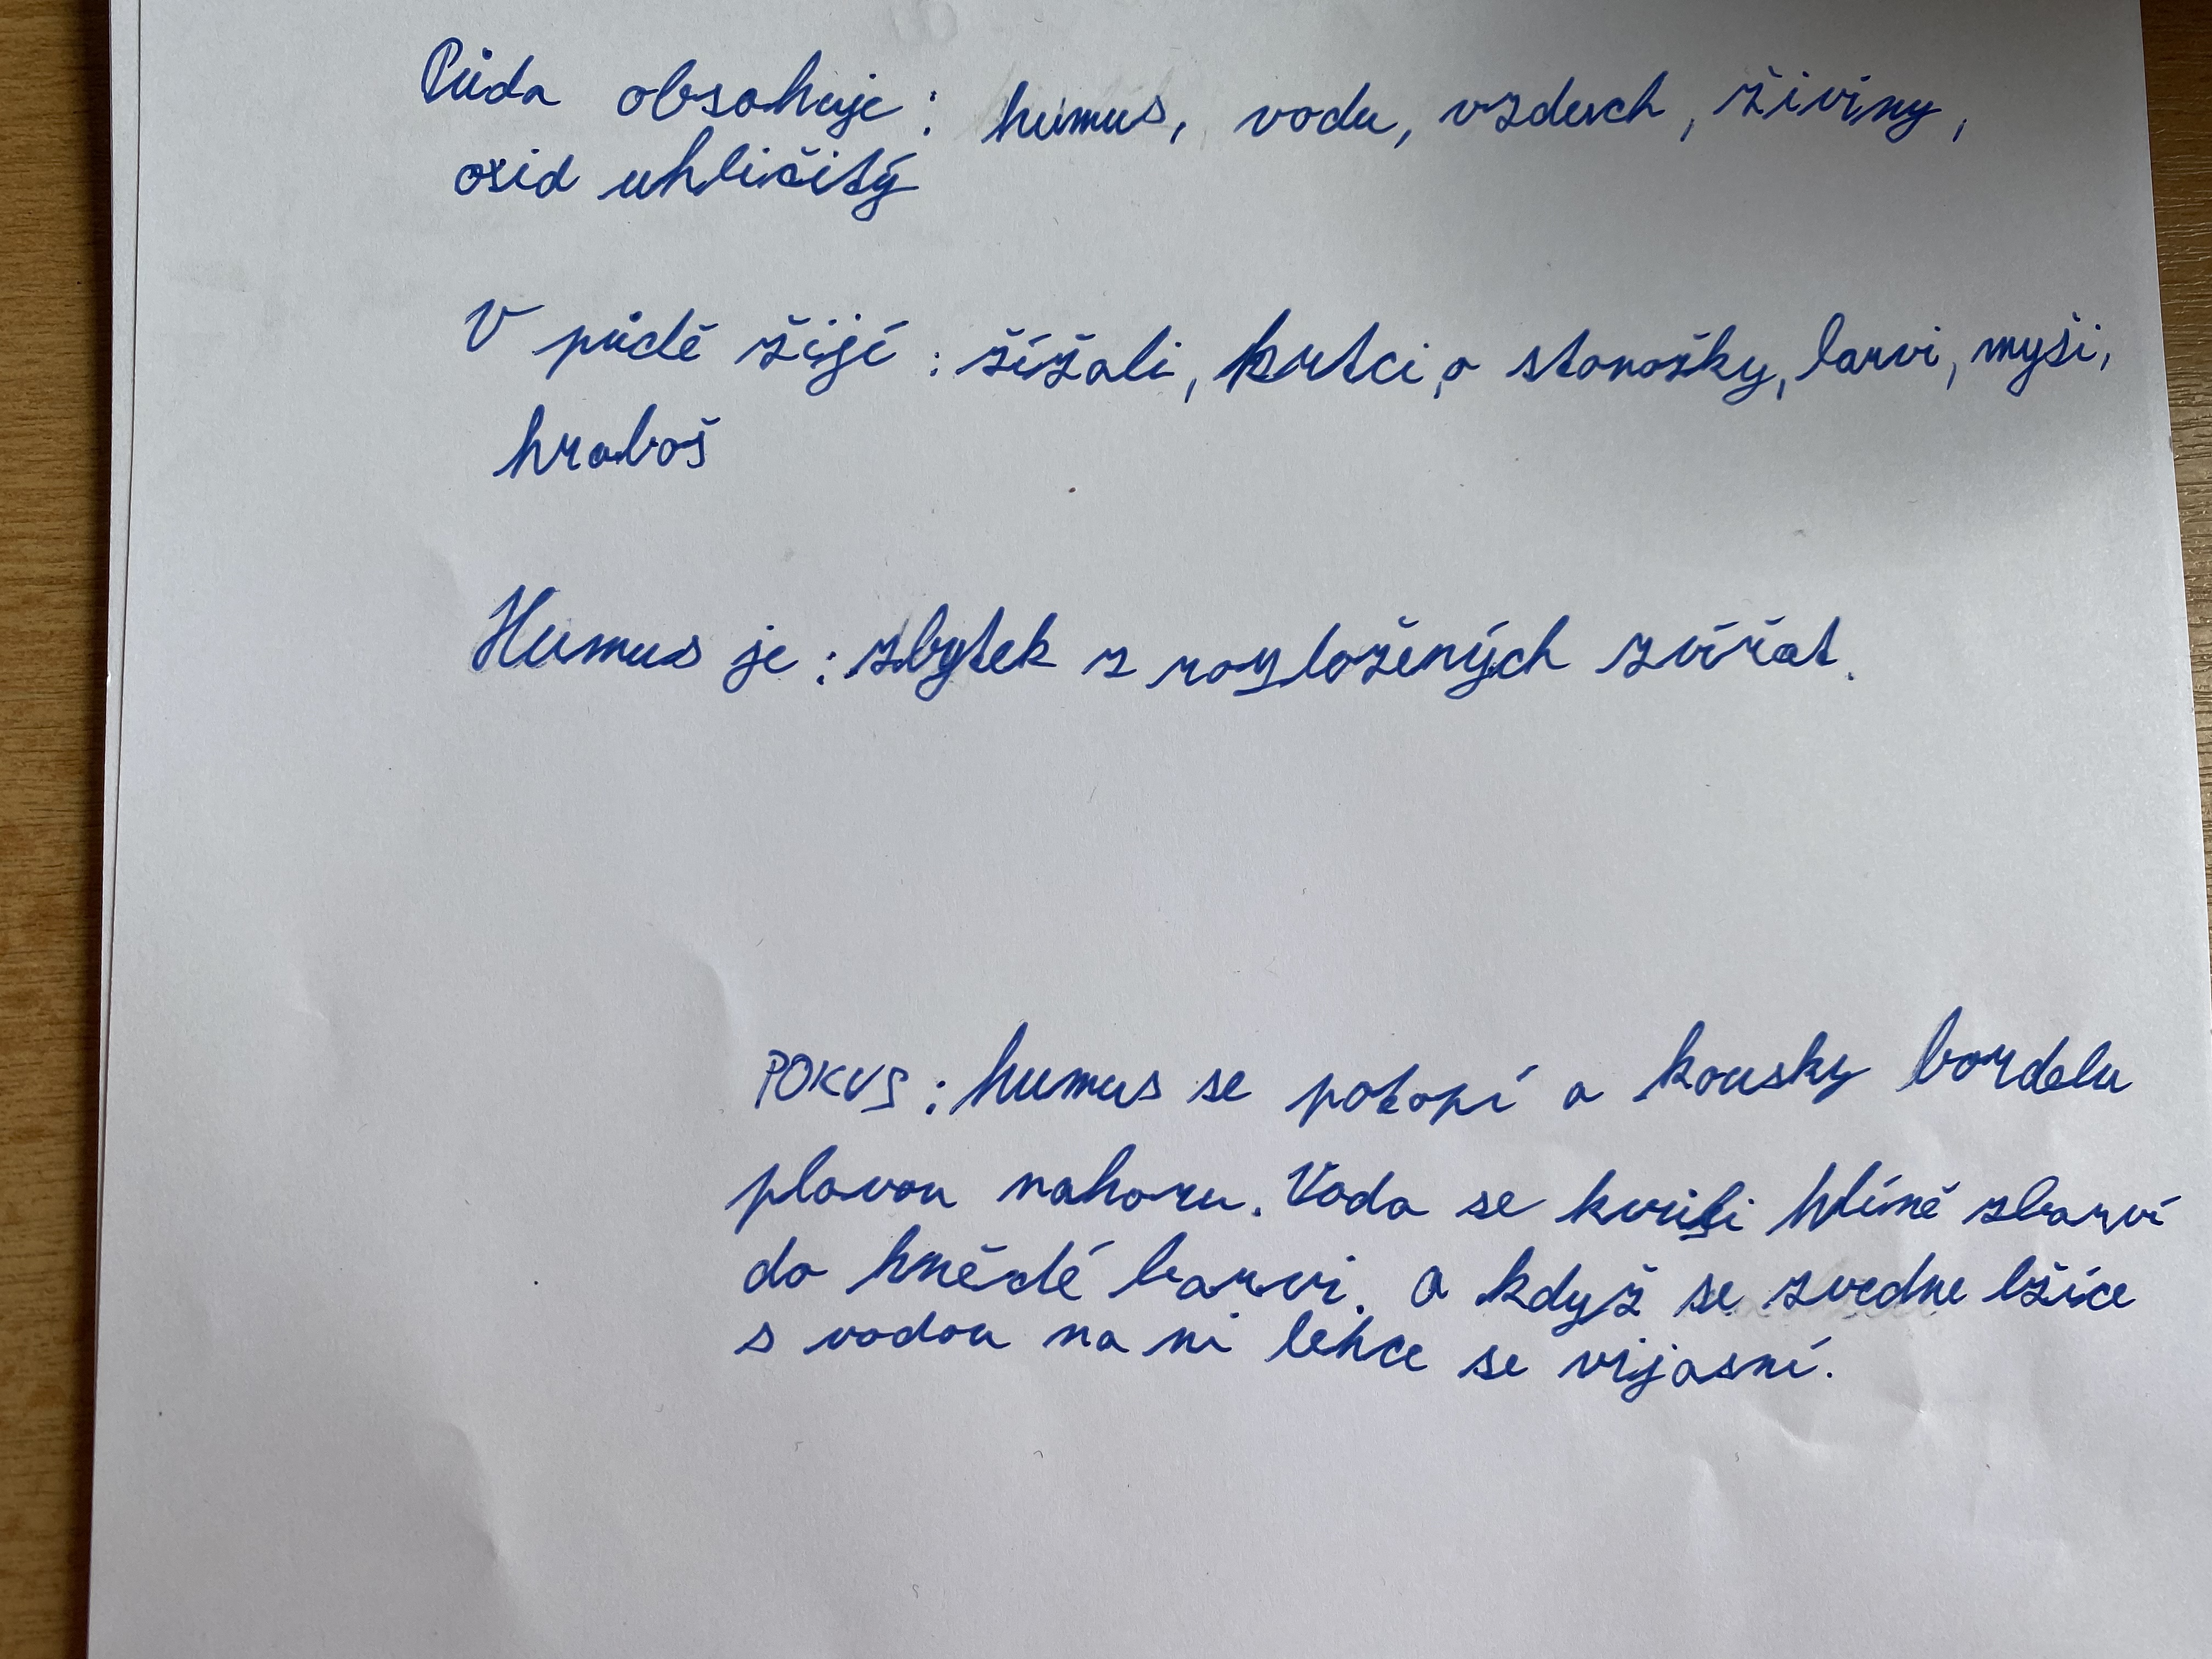 Půda obsahuje : humus, vodu, vzduch, živiny,
oxid uhličitý
V půdě žijí : žížali, krtci, a stonožky, larvi, myši,
hraboš
Humus je : zbytek z rozložených zvířat.
POKUS : humus se potopí a kousky bordelu
plavou nahoru. Voda se kvůli hlíně zbarví
do hnědé barvi. a když se zvedne lžíce
s vodou na ni lehce se vijasní.